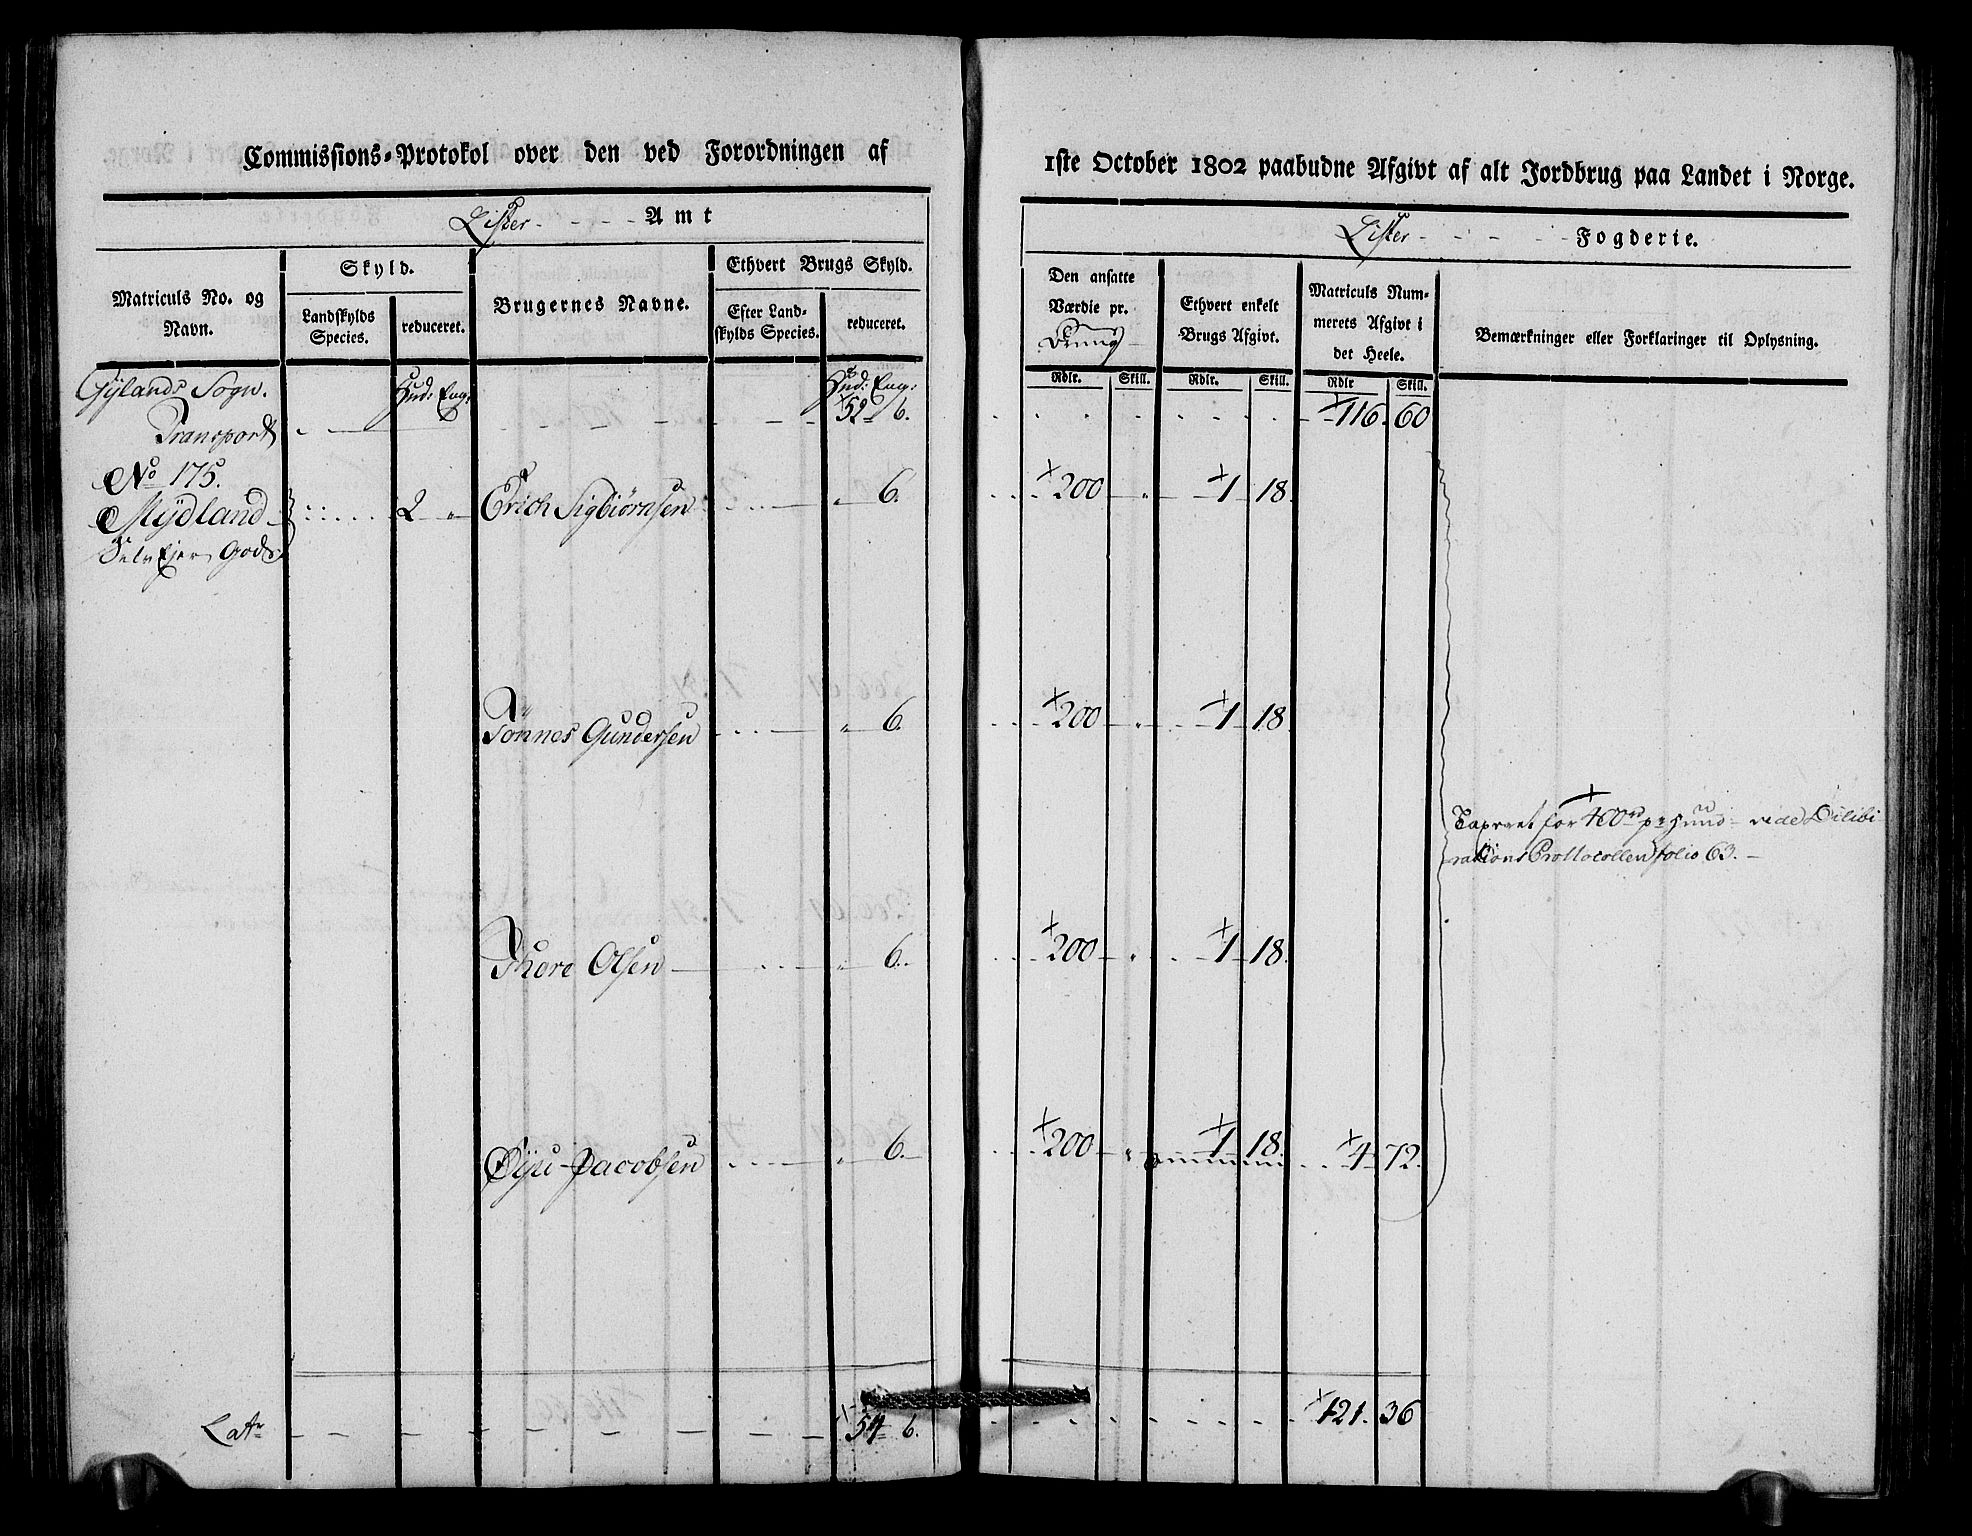 Commissions-Protokol over den ved Forordningen af
Lister Amt
Matriculs No. og Navn.
Skyld.
Landskylds Species.
reduceret.
Brugernes Navne.
Ethvert Brugs Skyld.
Efter Landskylds Species.
reduceret.
Gylands Sogn. Hud: Eng: Hud: Eng:
Transport 52 6.
No 175.
Mydland 2 „ Erich Sigbiørnsen „ 6.
SelvEjer Gods
Tönnes Gundersen „ 6.
Thore Olsen „ 6.
Jacobsen „ 6.
Latr 54 6.
1ste October 1802 paabudne Afgivt af alt Jordbrug paa Landet i Norge.
Lister Fogderie.
Den ansatte Værdie pr. Brug
Ethvert enkelt Brugs Afgivt.
Matriculs Nummerets Afgivt i det Heele.
Bemærkninger eller Forklaringer til Oplysning.
Rdlr. Skill. Rdlr. Skill. Rdlr Skill.
116. 60
200 „ 1 18.
200 „ 1 18.
Taxeret for 400 rd pr Hud vide Dilibi
rations Prottocollen folio 63.
200 „ 1 18.
200 „ 1 18. 4 72.
121. 36